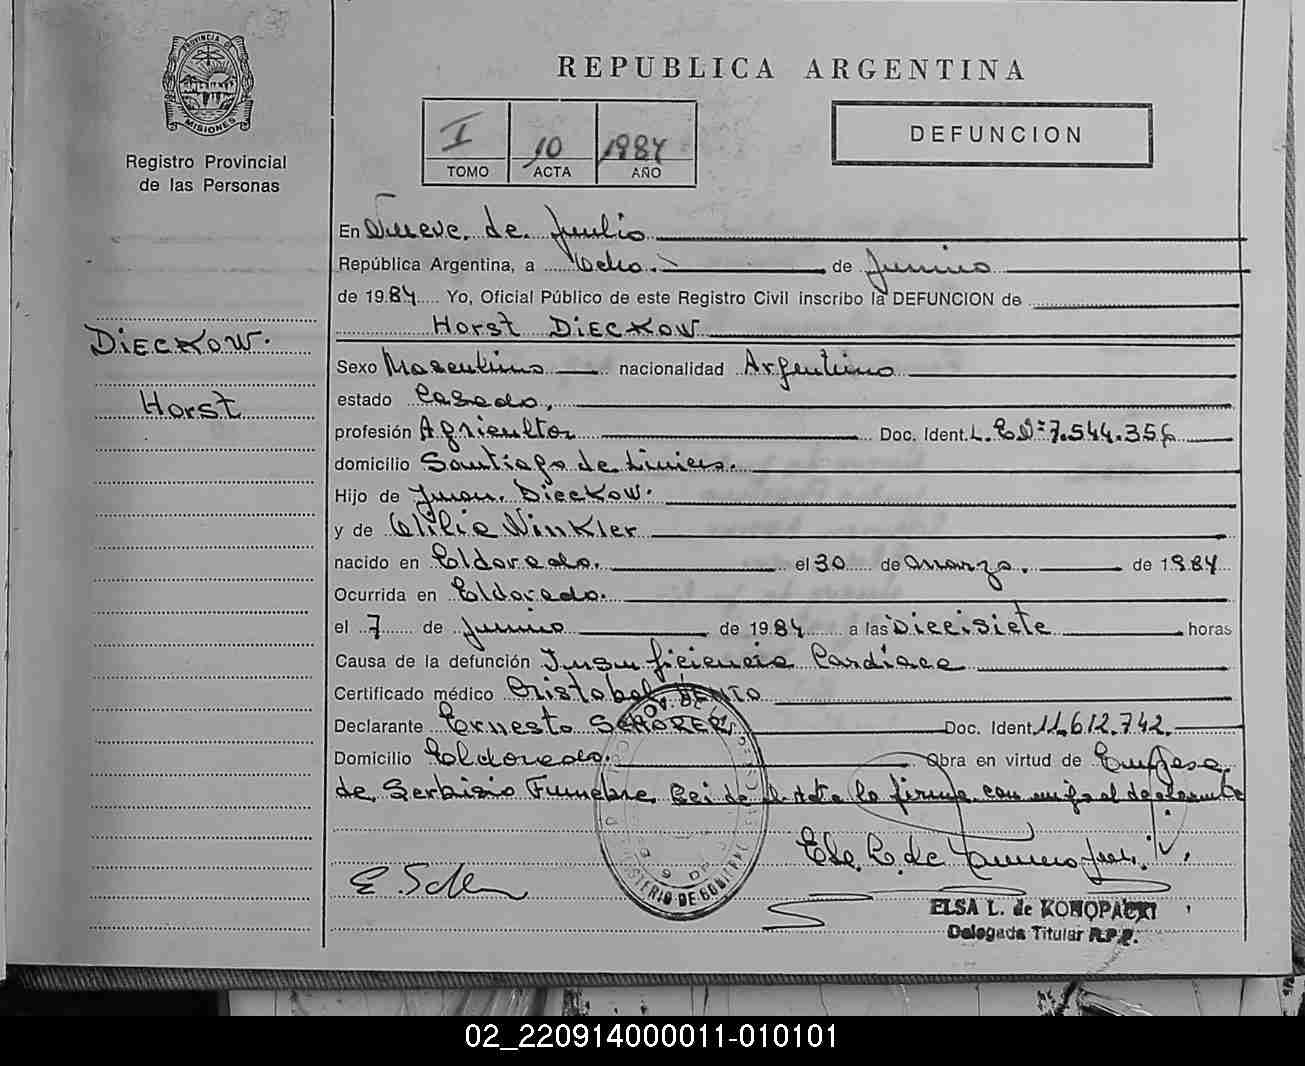 PROVINCIA DE
MISIONES
Registro Provincial
de las Personas
DIECKOW.
Horst
REPUBLICA ARGENTINA
I 10 1984
TOMO ACTA AÑO
DEFUNCION
En Nueve de Julio
República Argentina, a Ocho. de Junio
de 1984 Yo, Oficial Público de este Registro Civil inscribo la DEFUNCION de
Horst DIECKOW
Sexo Masculino nacionalidad Argentino
estado Casado,
profesión Agricultor Doc. Ident. L.E Nº 7.544.356
domicilio Santiago de Liniers.
Hijo de Juan. Dieckow.
y de Winkler
nacido en Eldorado. el 30 de marzo. de 1984
Ocurrida en Eldorado.
el 7 de junio de 1984 a las Diecisiete horas
Causa de la defunción Insuficiencia Cardiaca
Certificado médico Cristobal
Declarante Ernesto SCHORER Doc. Ident. 11.612.742.
Domicilio Eldorado. Obra en virtud de Empresa
de Serbisio Funebre. Leida el Acta la firma con migo el declarante
MINISTERIO DE GOBIERNO
ELSA L. de KONOPACKI
Delegada Titular R.P.P.
02_220914000011-010101